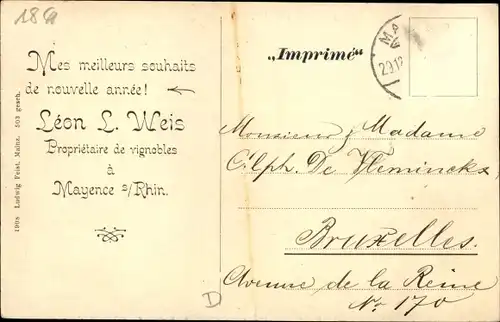 Mes meilleurs souhaits
de nouvelle année!
Léon L. Weis
Propriétaire de vignobles
à
Mayence s/Rhin.
1908 Ludwig Feist, Mainz. 503 gesch.
„Imprimé“
Monsieur & Madame
Alph. De Vleminckx
Bruxelles.
Avenue de la Reine
No. 170
D